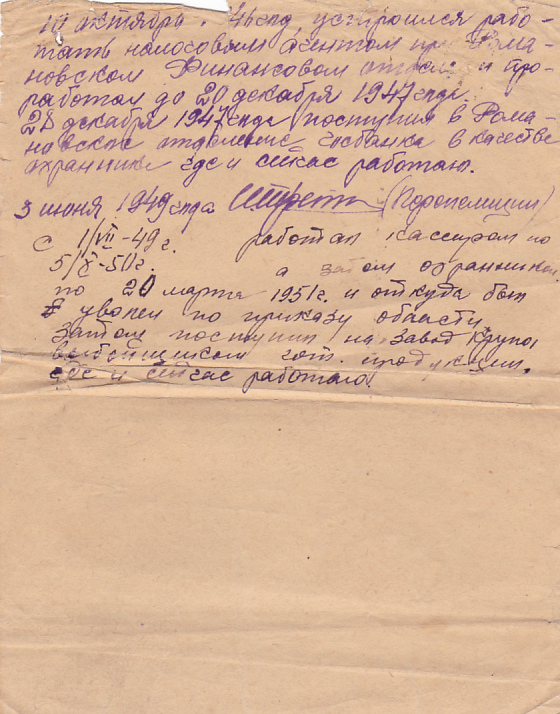 10 октября 46 года устроился рабо-
тать налоговым агентом при Рома-
новском Финансовом отделе и про-
работал до 20 декабря 1947 года.
28 декабря 1947 года поступил в Рома-
новское отделение Госбанка в качестве
охранника где и сейчас работаю.
3 июня 1949 года
С 1/VII-49 г. работал кассиром по
5/X-50 г. а затом охранником
по 20 марта 1951 г. и откуда был
уволен по приказу области
Затом поступил на завод
гот. продукции.
где и сейчас работаю.